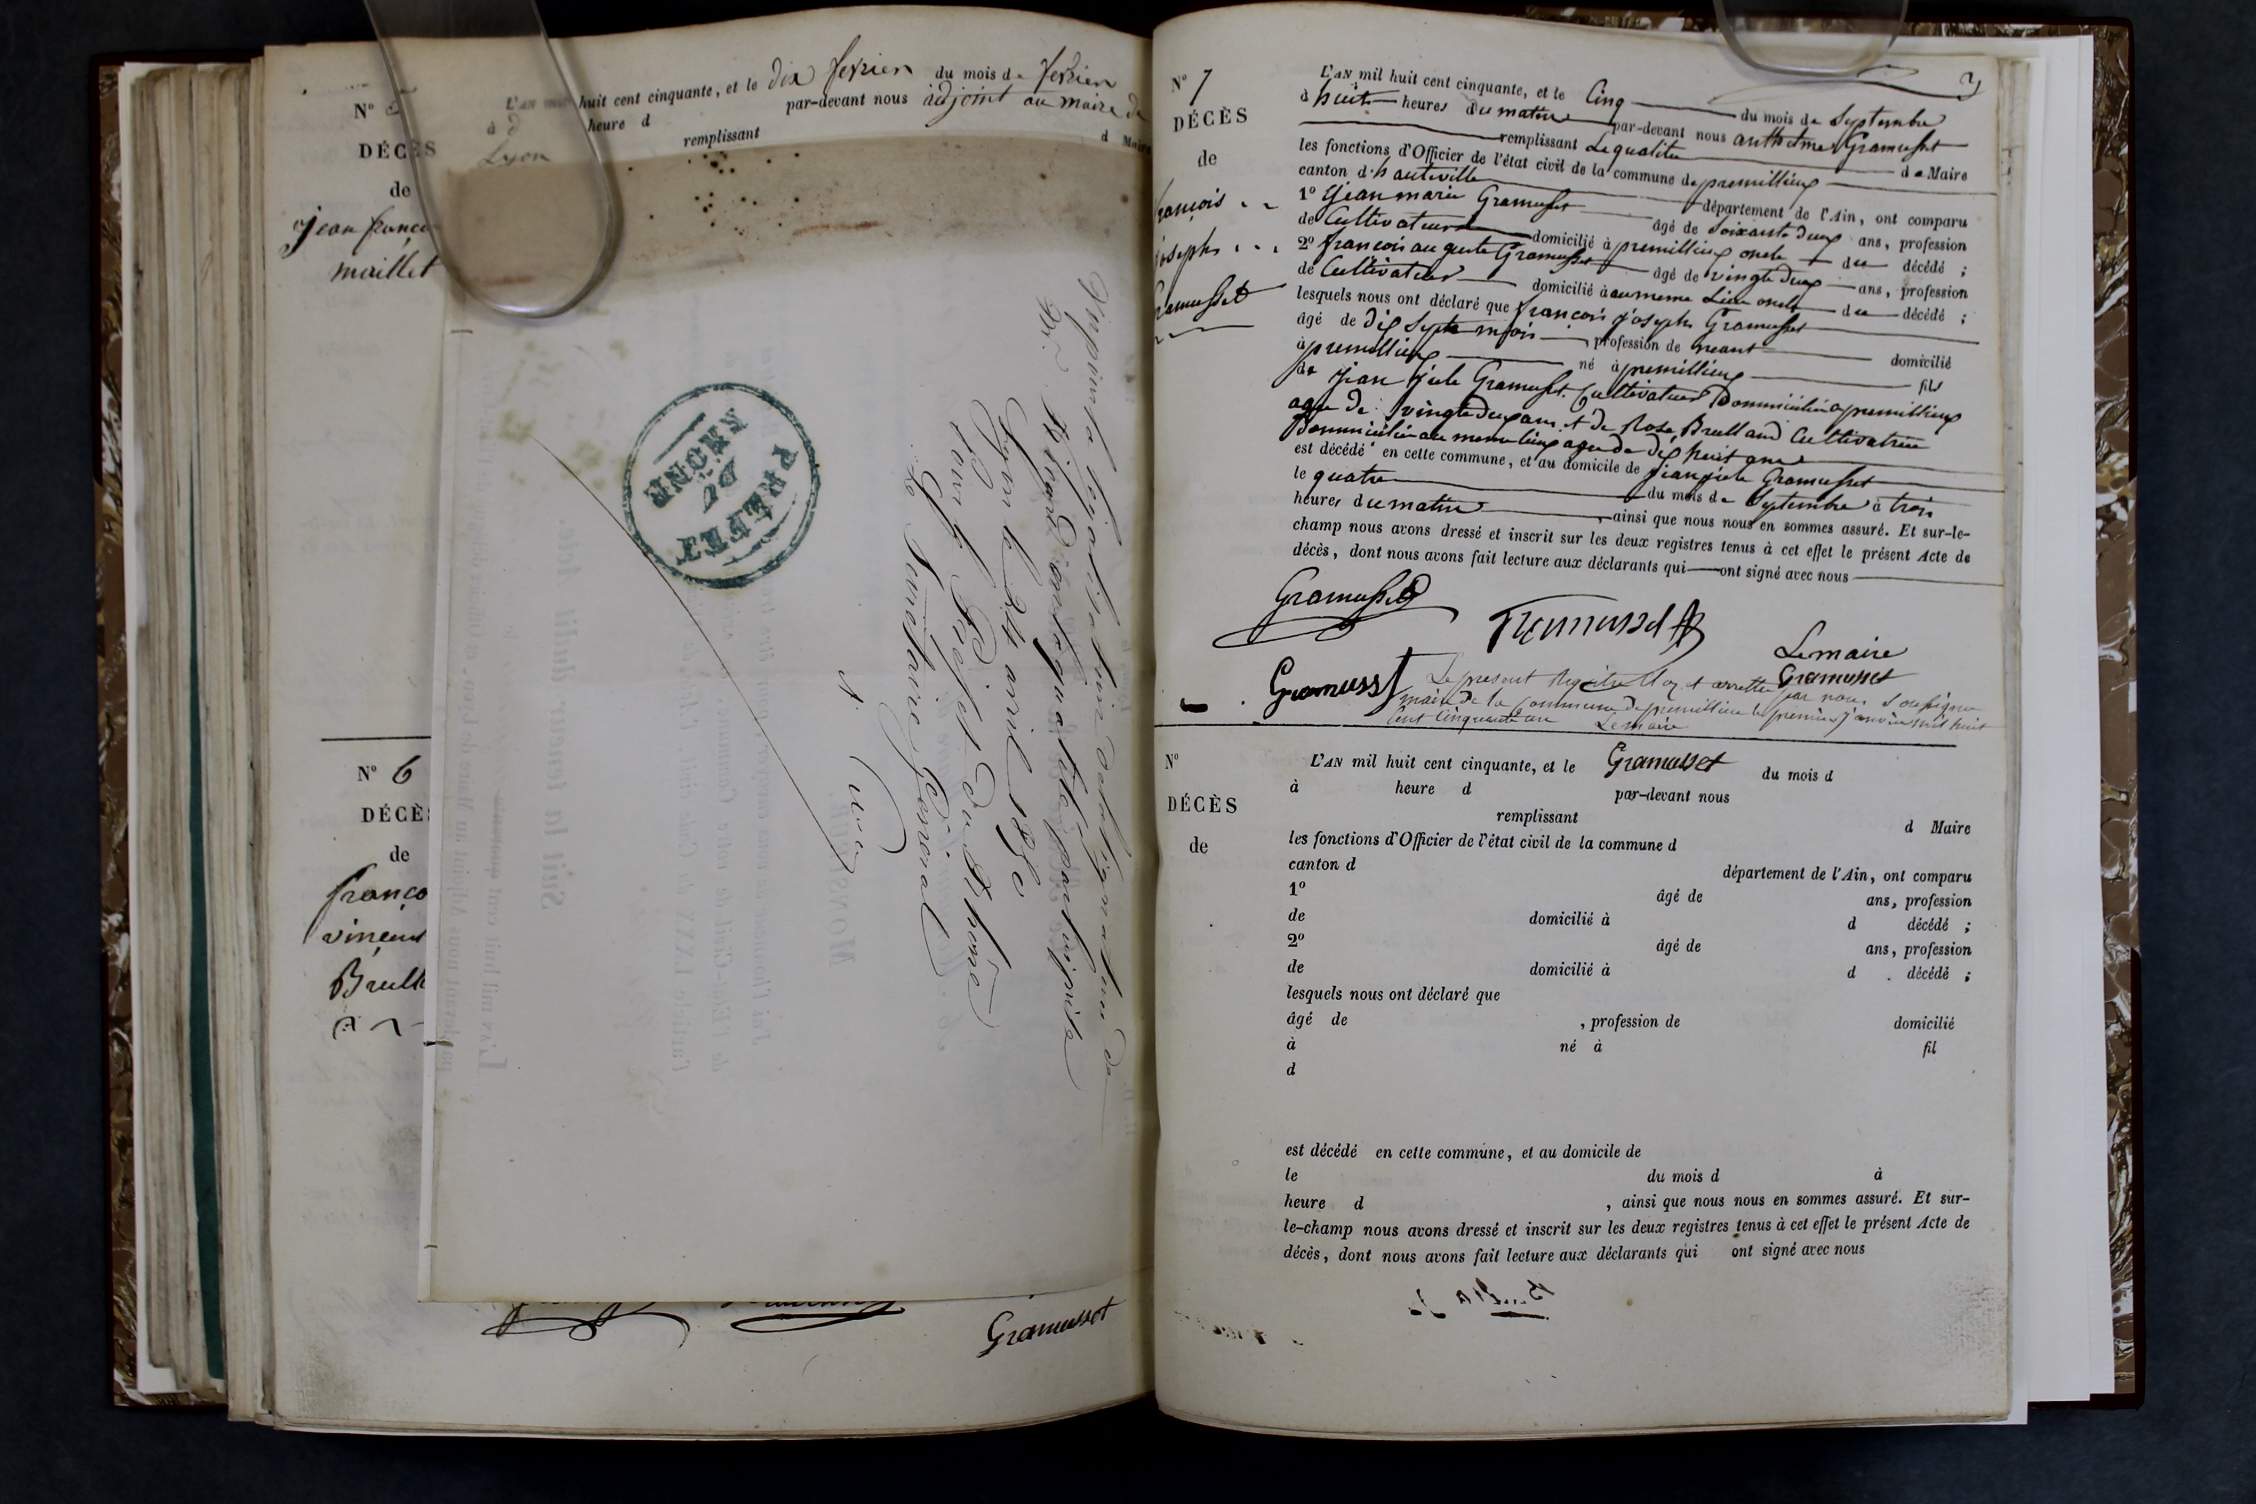 N° 5
DÉCÈS
de
jean françois
maillet
L'AN mil huit cent cinquante, et le dix fevrier du mois de fevrier
à d heure d par-devant nous adjoint au maire de
Lyon remplissant d Maire
PRÉFET
DU
RHONE
Vu pour la legalisation de la signature de
Mr.
Lyon le 24 avril 1850
Pour le Préfet du Rhône
Le Secrétaire Général
N° 6
DÉCÈS
de
franço
vincent
Brull
Gramusset
N° 7
DÉCÈS
de
françois
joseph
Gramusset
L'AN mil huit cent cinquante, et le Cinq du mois de Septembre
à huit heures du matin par-devant nous anthelme Gramusset
remplissant Le qualitee de Maire
les fonctions d'Officier de l'état civil de la commune de premillieu
canton d'hauteville département de l'Ain, ont comparu
1° Jean marie Gramusset âgé de Soixante deux ans, profession
de Cultivateur domicilié à premillieu oncle du décédé ;
2° francois auguste Gramusset âgé de vingt deux ans, profession
de Cultivateur domicilié à au meme Lieu oncle du décédé ;
lesquels nous ont déclaré que francois joseph Gramusset
âgé de dix Sept mois , profession de neant domicilié
à premillieu né à premillieu fils
de jean jule Gramusset Cultivateur Domicilié a premillieu
age de vingt deux ans et de Rose Brulland Cultivatrice
Domiciliée au meme lieu agee de dix huit ans
est décédé en cette commune, et au domicile de jean jule Gramusset
le quatre du mois de Septembre à trois
heures du matin , ainsi que nous nous en sommes assuré. Et sur-le-
champ nous avons dressé et inscrit sur les deux registres tenus à cet effet le présent Acte de
décès, dont nous avons fait lecture aux déclarants qui ont signé avec nous
Gramusset
Gramusset
Le maire
Gramusset
Gramusset
Le present Registre Clos et arretté par nous Soussigné
maire de la Commune de premillieu le premier janvier mil huit
Cent Cinquante un Le maire
Gramusset
N°
DÉCÈS
de
L'AN mil huit cent cinquante, et le du mois d
à heure d par-devant nous
remplissant d Maire
les fonctions d'Officier de l'état civil de la commune d
canton d département de l'Ain, ont comparu
1° âgé de ans, profession
de domicilié à d décédé ;
2° âgé de ans, profession
de domicilié à d décédé ;
lesquels nous ont déclaré que
âgé de , profession de domicilié
à né à fil
d
est décédé en cette commune, et au domicile de
le du mois d à
heure d , ainsi que nous nous en sommes assuré. Et sur-
le-champ nous avons dressé et inscrit sur les deux registres tenus à cet effet le présent Acte de
décès, dont nous avons fait lecture aux déclarants qui ont signé avec nous